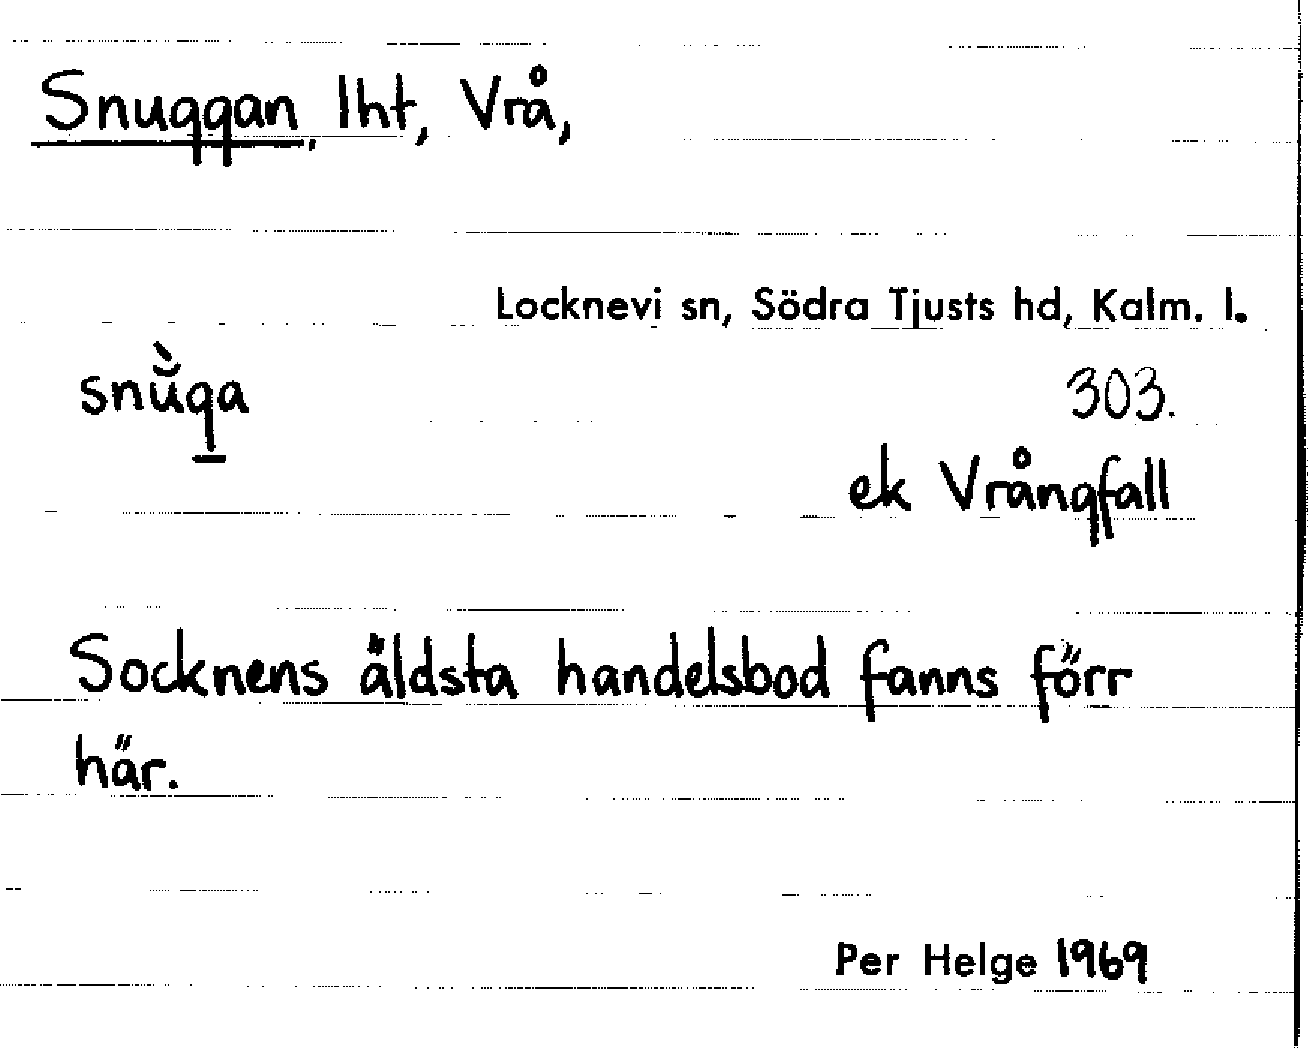 Snuggan, lht, Vrå,
Locknevi sn, Södra Tjusts hd, Kalm. l.
snŭ̀g̱a
303.
ek Vrångfall
Socknens äldsta handelsbod fanns förr
här.
Per Helge 1969